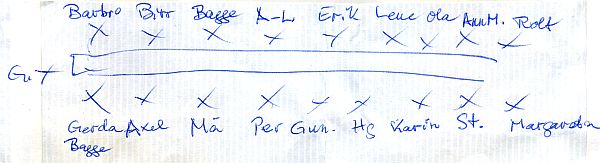 Barbro Birr Bagge A-L Erik Lene Ola AnnM. Rolf
Gu
Gerda Axel Må Per Gun. Hg Karin St. Margareta
Bagge